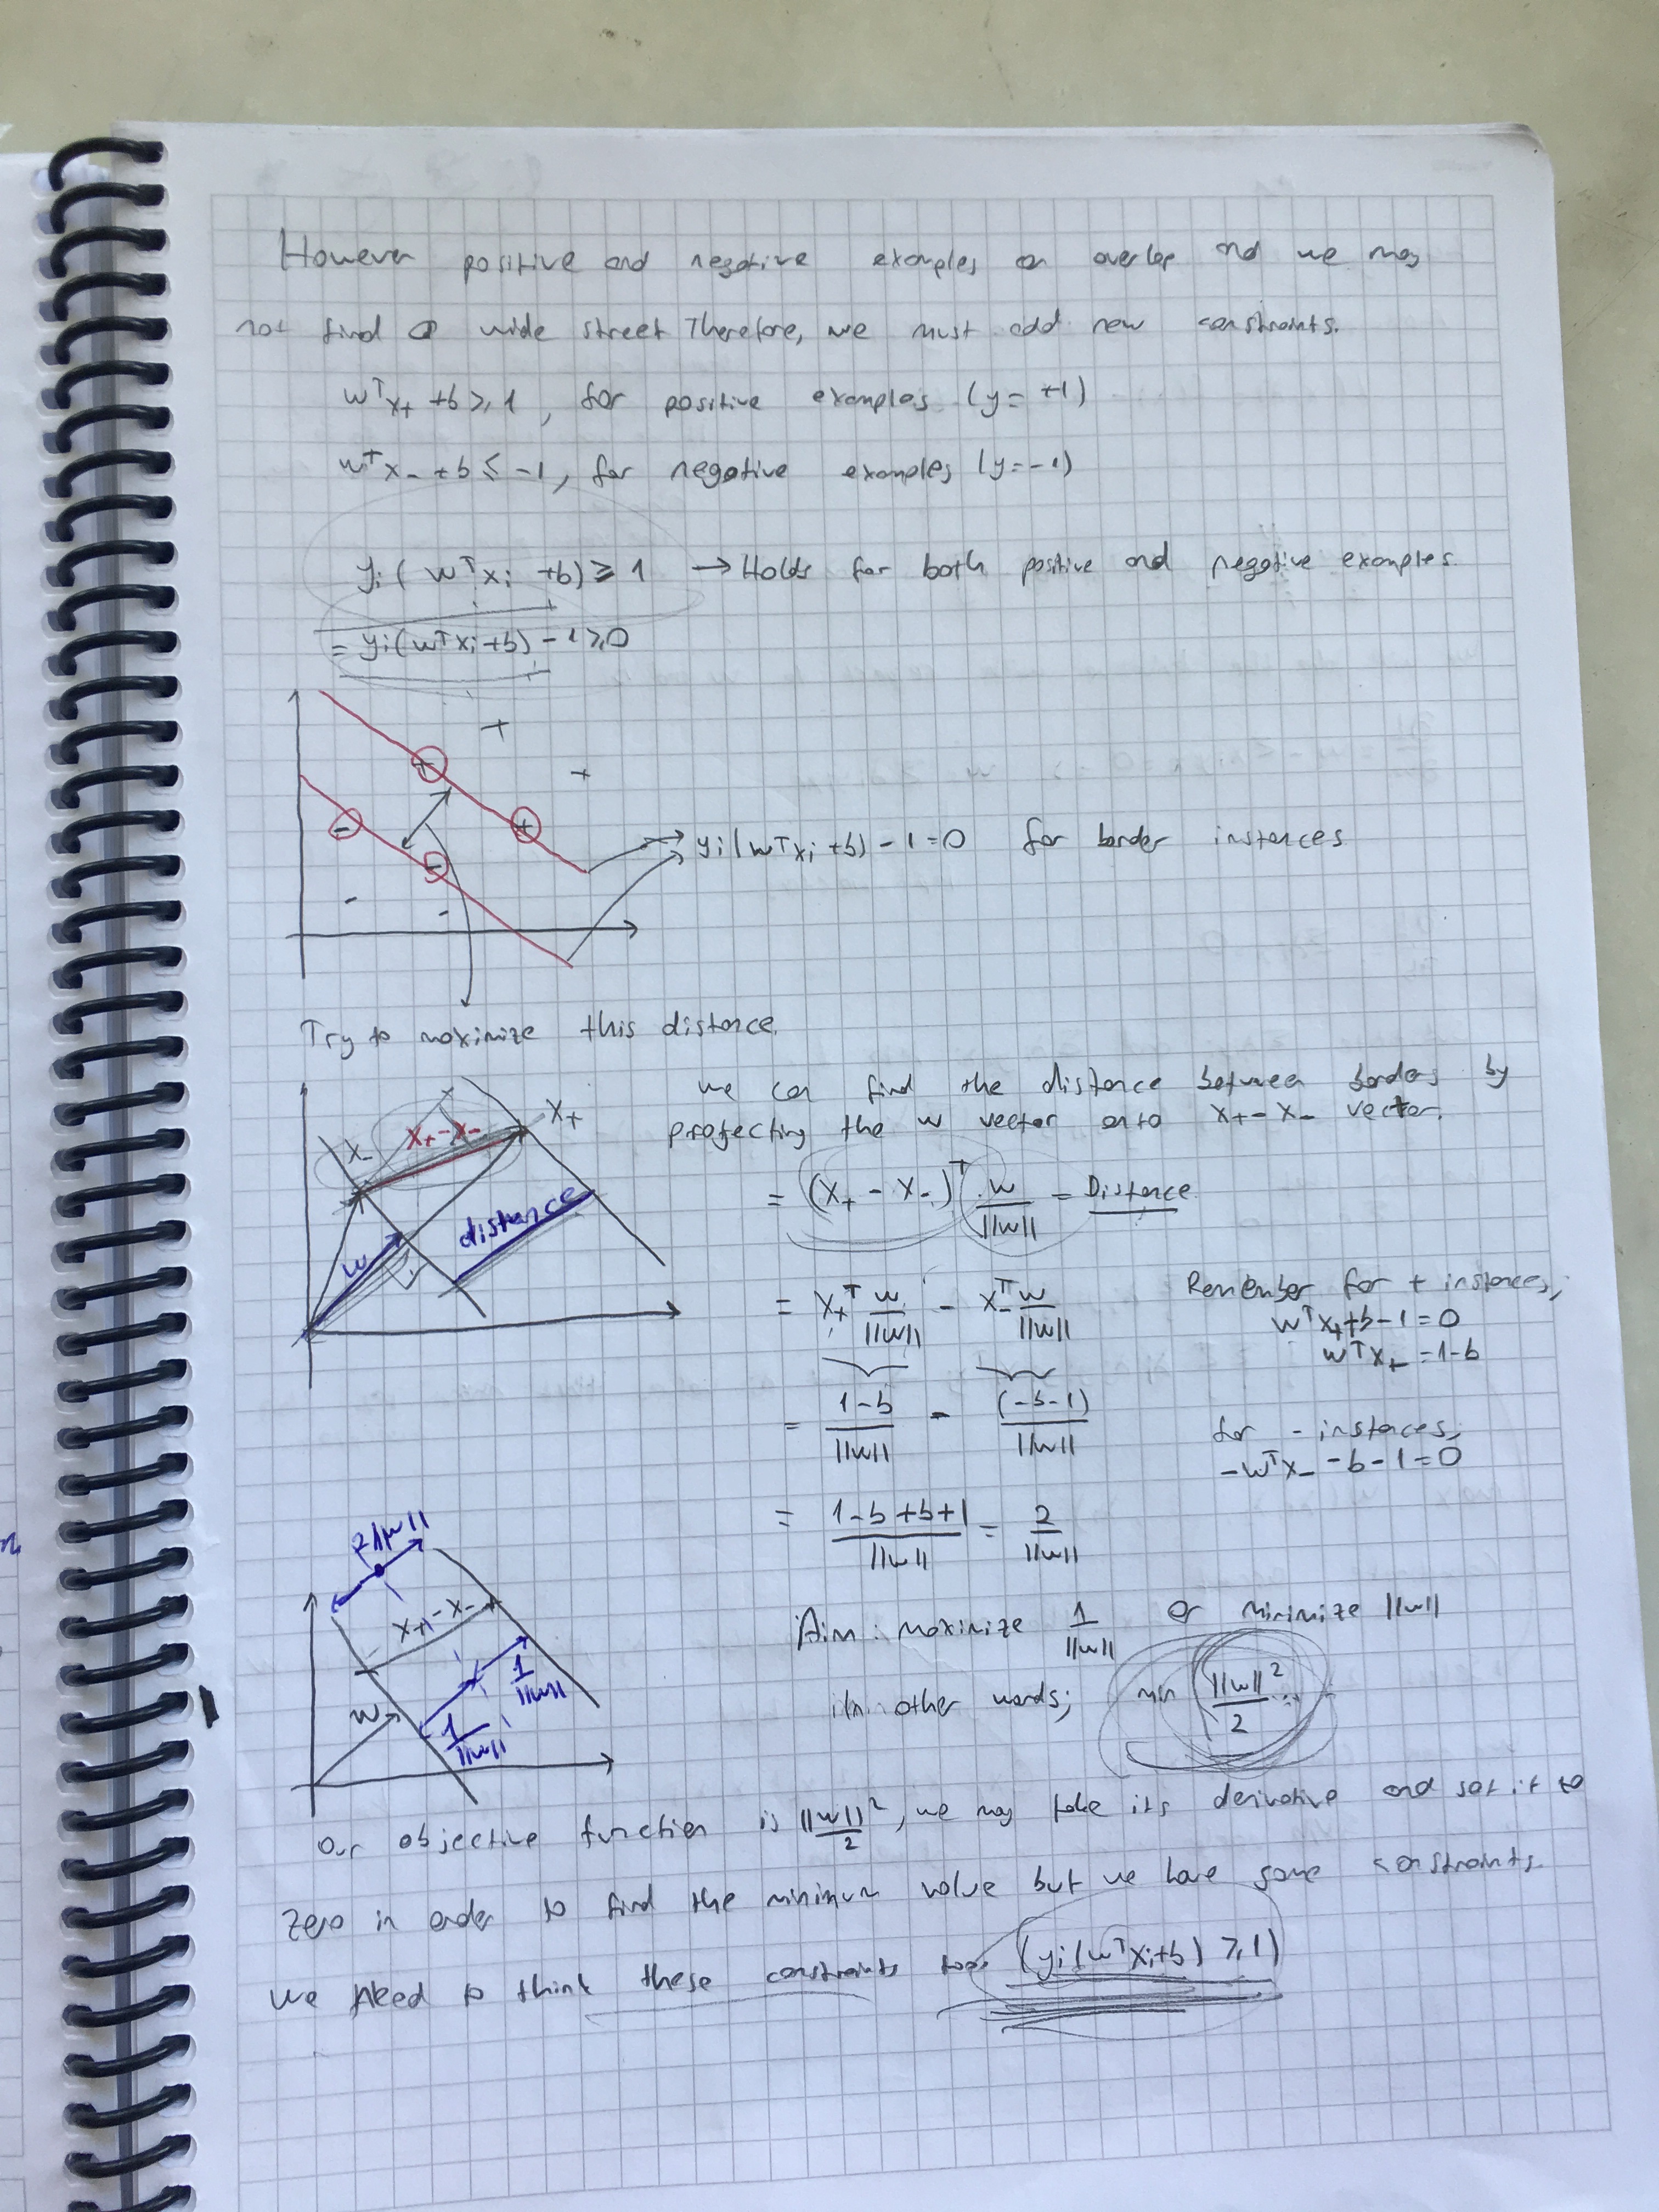 However positive and negative examples can overlap and we may
not find a wide street Therefore, we must add new constraints.
wᵀx₊ + b ≥ 1, for positive examples (y = +1)
wᵀx₋ + b ≤ -1, for negative examples (y = -1)
yᵢ(wᵀxᵢ + b) ≥ 1 → Holds for both positive and negative examples.
= yᵢ(wᵀxᵢ + b) - 1 ≥ 0
+
+
+
- +
-
- -
yᵢ(wᵀxᵢ + b) - 1 = 0 for border instances
Try to maximize this distance.
we can find the distance between borders by
projecting the w vector onto x₊ - x₋ vector.
x₋ x₊ - x₋ x₊
w distance
= (x₊ - x₋)ᵀ · w/||w|| = Distance
= x₊ᵀ w/||w|| - x₋ᵀ w/||w||
Remember for + instances,
wᵀx₊ + b - 1 = 0
wᵀx₊ = 1 - b
= (1-b)/||w|| - (-b-1)/||w||
for - instances,
-wᵀx₋ - b - 1 = 0
= (1-b+b+1)/||w|| = 2/||w||
2/||w||
x₊ - x₋
1/||w||
w 1/||w||
Aim: maximize 1/||w|| or minimize ||w||
in other words; min ||w||²/2
our objective function is ||w||²/2, we may take its derivative and set it to
zero in order to find the minimum value but we have some constraints.
we need to think these constraints too. (yᵢ(wᵀxᵢ+b) ≥ 1)